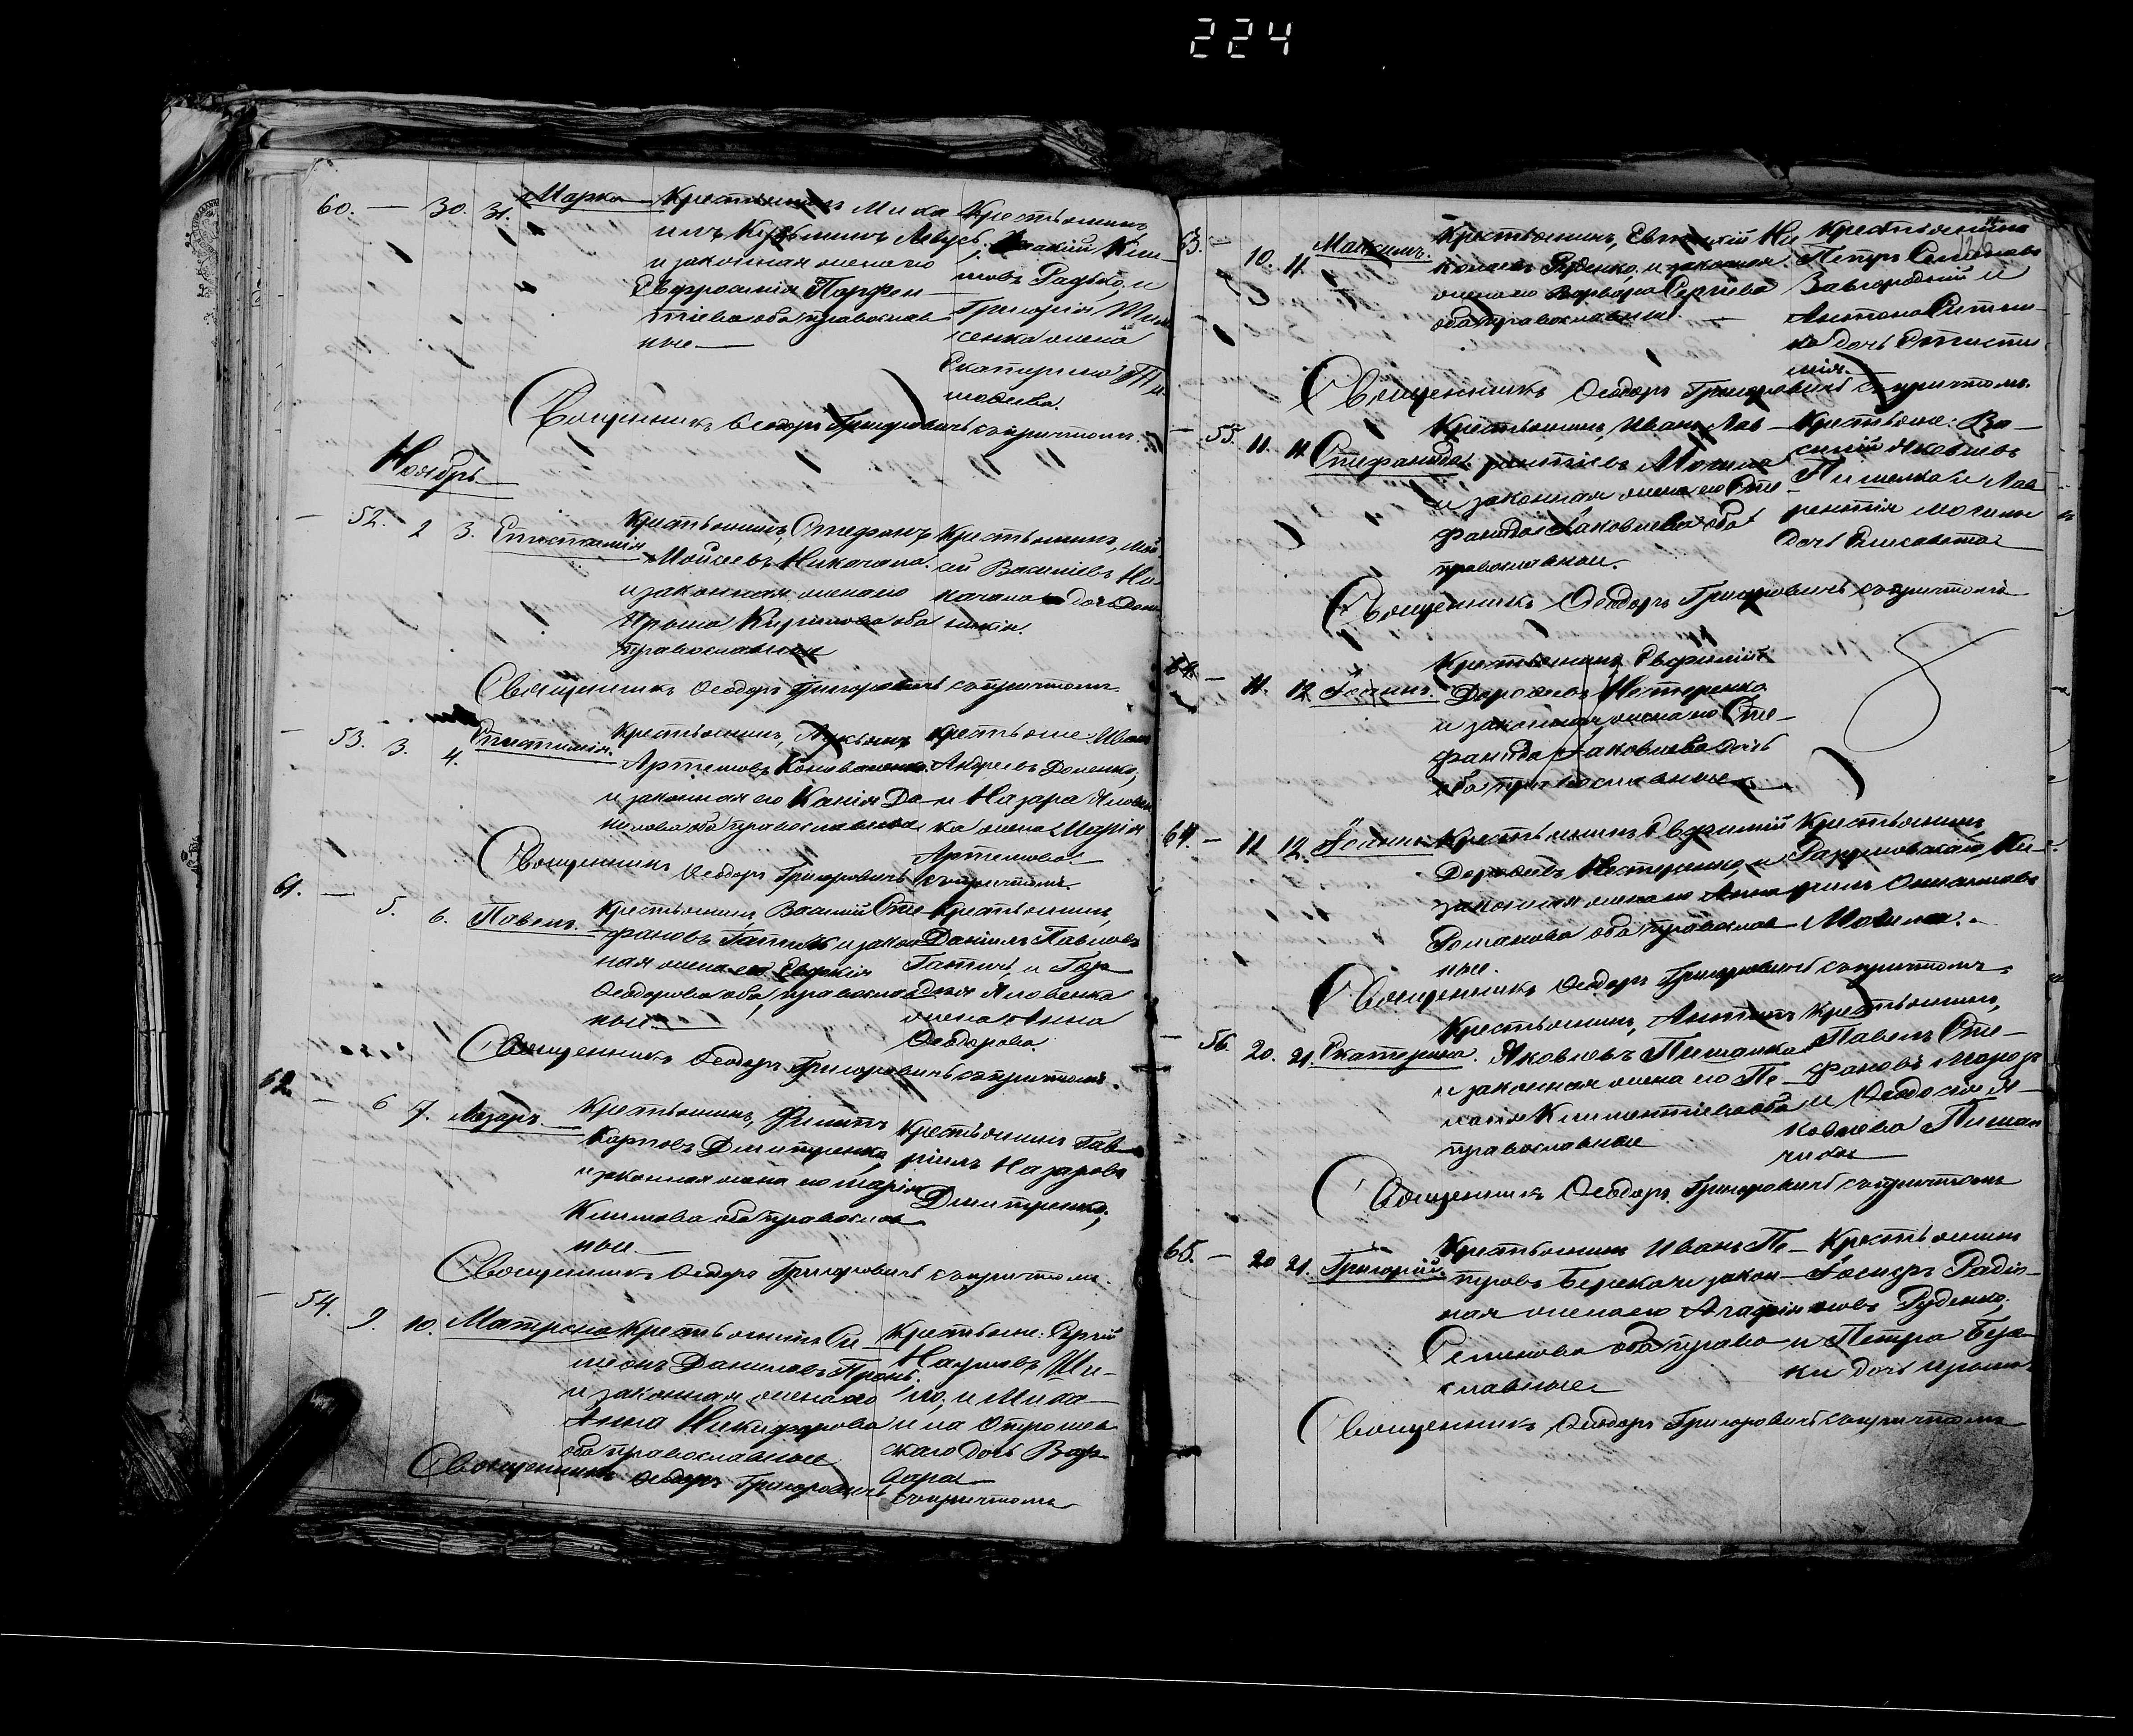 224
60. — 30. 31. Марко Крестьянинъ Миха
илъ Кузьминъ
и законная жена его
Евфросинія Парфен
тіева оба православ
ные —
Крестьянинъ
Григорія
жена
Екатерина Ти
моѳеева.
Священникъ Ѳеодоръ Григоровичъ съ причтомъ.
Ноябрь
— 52. 2 3. Епистимія Крестьянинъ, Стефанъ
Мойсеевъ Никочала
и законная жена его
Ирина Кирилова оба
православные
Крестьянинъ, Мой
сей Василіевъ Ни
Священникъ Ѳеодоръ Григоровичъ съ причтомъ.
— 53. 3. 4. Епистимія. Крестьянинъ, Лукьянъ
Артемовъ Коноваленко
и законная его Ксенія Да
нилова оба православные
Крестьяне: Иванъ
Андреевъ Доменко,
и Назара Яловен
ка жена Марія
Артемова
Священникъ Ѳеодоръ Григоровичъ съ причтомъ.
61. — 5. 6. Павелъ. Крестьянинъ Василій Сте
фановъ Гатичъ и закон
ная жена его Евдокія
Ѳеодорова оба православ
ные —
Крестьянинъ,
Даніилъ Павловъ
Гатичъ, и Гор
дея Яловенка
жена Анна
Ѳеодорова.
Священникъ Ѳеодоръ Григоровичъ съ причтомъ.
62. — 6 7. Лазарь. Крестьянинъ, Филиппъ
Карповъ Дмитренко
и законная жена его Марія
Климова оба православ
ные. —
Крестьянинъ Гав
ріилъ Назаровъ
Дмитренко;
Священникъ Ѳеодоръ Григоровичъ съ причтомъ.
— 54. 9 10. Матрена Крестьянинъ Си
меонъ Даниловъ Пронь.
и законная жена его
Анна Никифорова
оба православные
Крестьяне: Сергій
Наумовъ
и Миха
ила
скаго дочь Вар
вара
Священникъ Ѳеодоръ Григоровичъ съ причтомъ
126
63. — 10. 11. Максимъ. Крестьянинъ, Евтихій Ни
колаевъ Руденко, и законная
жена его Варвара Сергіева
оба православные. —
Крестьянинъ
Петръ Семеновъ
Завгородній и
Антона
дочь Еписти
мія.
Священникъ Ѳеодоръ Григоровичъ съ причтомъ.
— 55. 11. 11. Стефанида. Крестьянинъ, Иванъ Лав
рентіевъ Могила
и законная жена его Сте
фанида Яковлева оба
православные.
Крестьяне: Ва
силій Яковлевъ
и Лав
рентія Могилы
дочь Елисавета
Священникъ Ѳеодоръ Григоровичъ съ причтомъ
64. — 11. 12. Іоаннъ. Крестьянинъ Евфимій
Дороѳеевъ Нестеренко
и законная жена его Сте
фанида Яковлева
оба православные
64. — 11 12. Іоаннъ. Крестьянинъ Евфимій
Дороѳеевъ Нестеренко, и
законная жена его Анна
Романова оба православ
ные.
Крестьянинъ
Могила.
Священникъ Ѳеодоръ Григоровичъ съ причтомъ.
— 56. 20. 21. Екатерина. Крестьянинъ, Антипъ
Яковлевъ
и законная жена его Пе
лагія Климентіева оба
православные
Крестьянинъ,
Павелъ Сте
фановъ Морозъ
и Ѳеодосія Я
ковлева
Священникъ Ѳеодоръ Григоровичъ съ причтомъ
65. — 20 21. Григорій. Крестьянинъ Иванъ Пе
тровъ Берека и закон
ная жена его Агафія
Семенова оба право
славные
Крестьянинъ
Іосифъ Радіо
новъ Руденко,
и Петра Бере
ки дочь Ирина.
Священникъ Ѳеодоръ Григоровичъ съ причтомъ